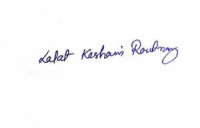 Lalat Keshari Routray